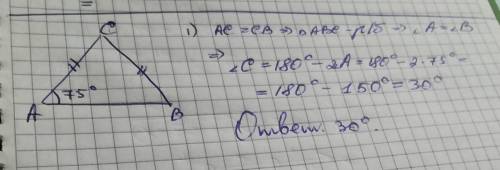 C
75°
A
B
1) AC = CB ⇒ △ABC - р/б ⇒ ∠A = ∠B
⇒
∠C = 180° - 2A = 180° - 2·75° =
= 180° - 150° = 30°
Ответ: 30°.